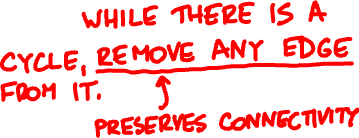 WHILE THERE IS A
CYCLE, REMOVE ANY EDGE
FROM IT.
PRESERVES CONNECTIVITY